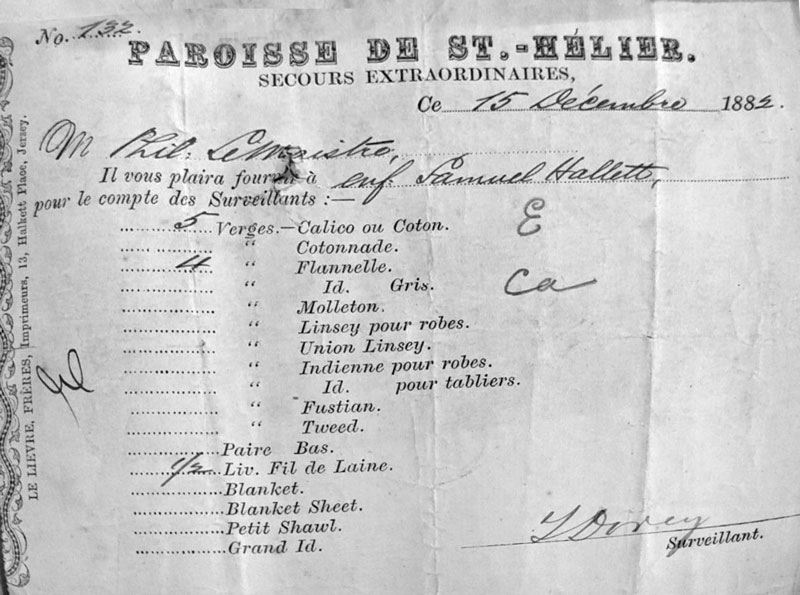 No. 132.
PAROISSE DE ST.-HÉLIER.
SECOURS EXTRAORDINAIRES,
Ce 15 Décembre 1882.
M Phil. LeMaistre,
Il vous plaira fournir à enf. Samuel Hallett,
pour le compte des Surveillants :—
5 Verges.—Calico ou Coton. E
“ Cotonnade.
4 “ Flannelle.
“ Id. Gris. Ca
“ Molleton.
“ Linsey pour robes.
“ Union Linsey.
“ Indienne pour robes.
“ Id. pour tabliers.
“ Fustian.
“ Tweed.
Paire Bas.
1/2 Liv. Fil de Laine.
Blanket.
Blanket Sheet.
Petit Shawl.
Grand Id.
Dorey
Surveillant.
LE LIEVRE, FRÈRES, Imprimeurs, 13, Halkett Place, Jersey.